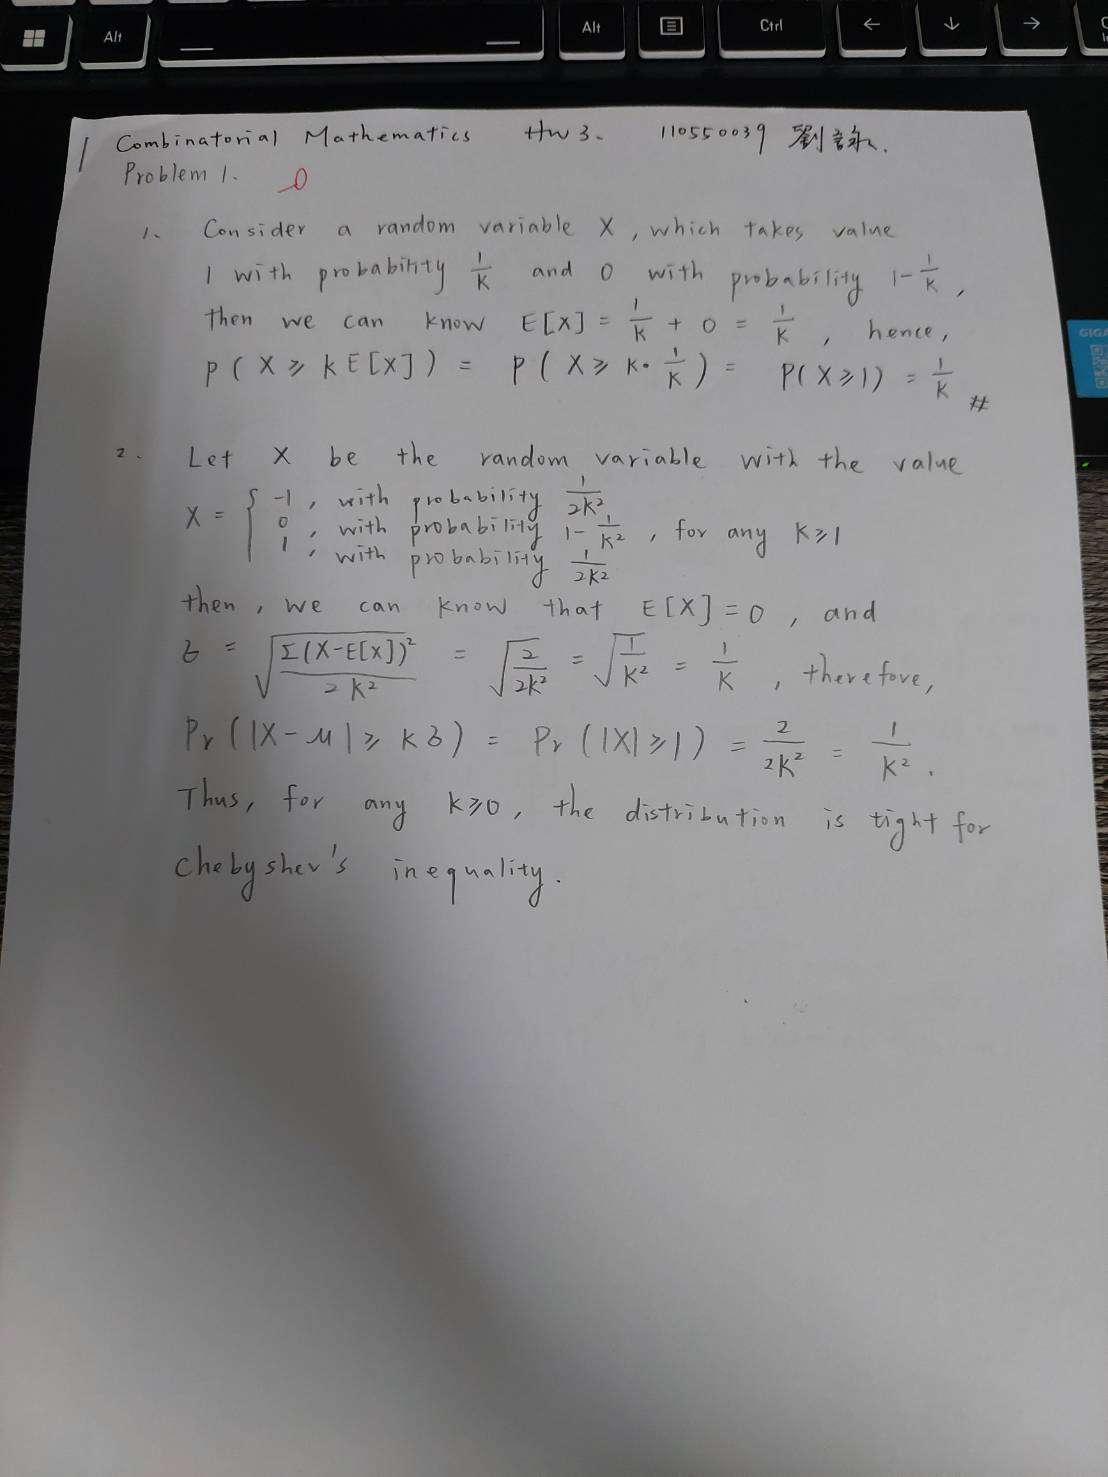 Alt
Alt
Ctrl
Combinatorial Mathematics Hw 3. 110550039 劉詠.
Problem 1.
1. Consider a random variable X, which takes value
1 with probability 1/K and 0 with probability 1-1/K,
then we can know E[X] = 1/K + 0 = 1/K, hence,
P(X ≥ kE[X]) = P(X ≥ K·1/K) = P(X ≥ 1) = 1/K #
GIGA
2. Let X be the random variable with the value
X = { -1, with probability 1/2K²
0, with probability 1-1/K², for any K≥1
1, with probability 1/2K²
then, we can know that E[X] = 0, and
σ = √(Σ(X-E[X])²/2K²) = √(2/2K²) = √(1/K²) = 1/K, therefore,
Pr(|X-μ| ≥ Kσ) = Pr(|X| ≥ 1) = 2/2K² = 1/K².
Thus, for any K≥0, the distribution is tight for
Chebyshev's inequality.